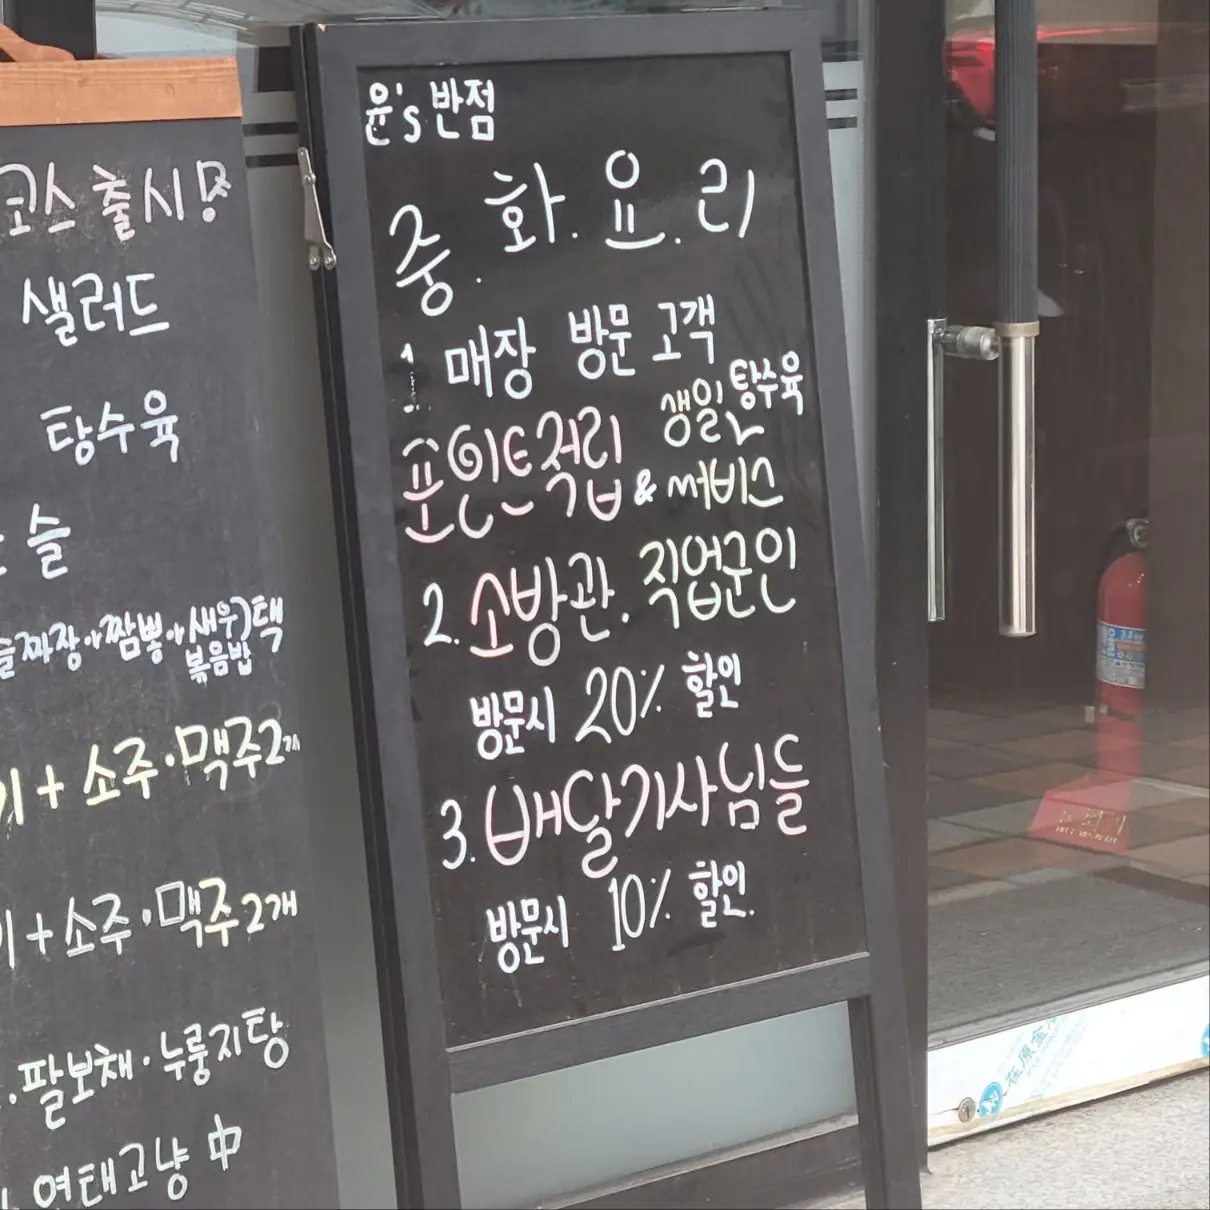 코스 출시
샐러드
탕수육
슬
짜장 짬뽕 새우볶음밥 택
+ 소주·맥주 2개
+ 소주·맥주 2개
팔보채·누룽지탕
中
윤's 반점
중.화.요.리
1. 매장 방문 고객
포인트적립 & 생일 탕수육 써비스
2. 소방관. 직업군인
방문시 20% 할인
3. 배달기사님들
방문시 10% 할인.